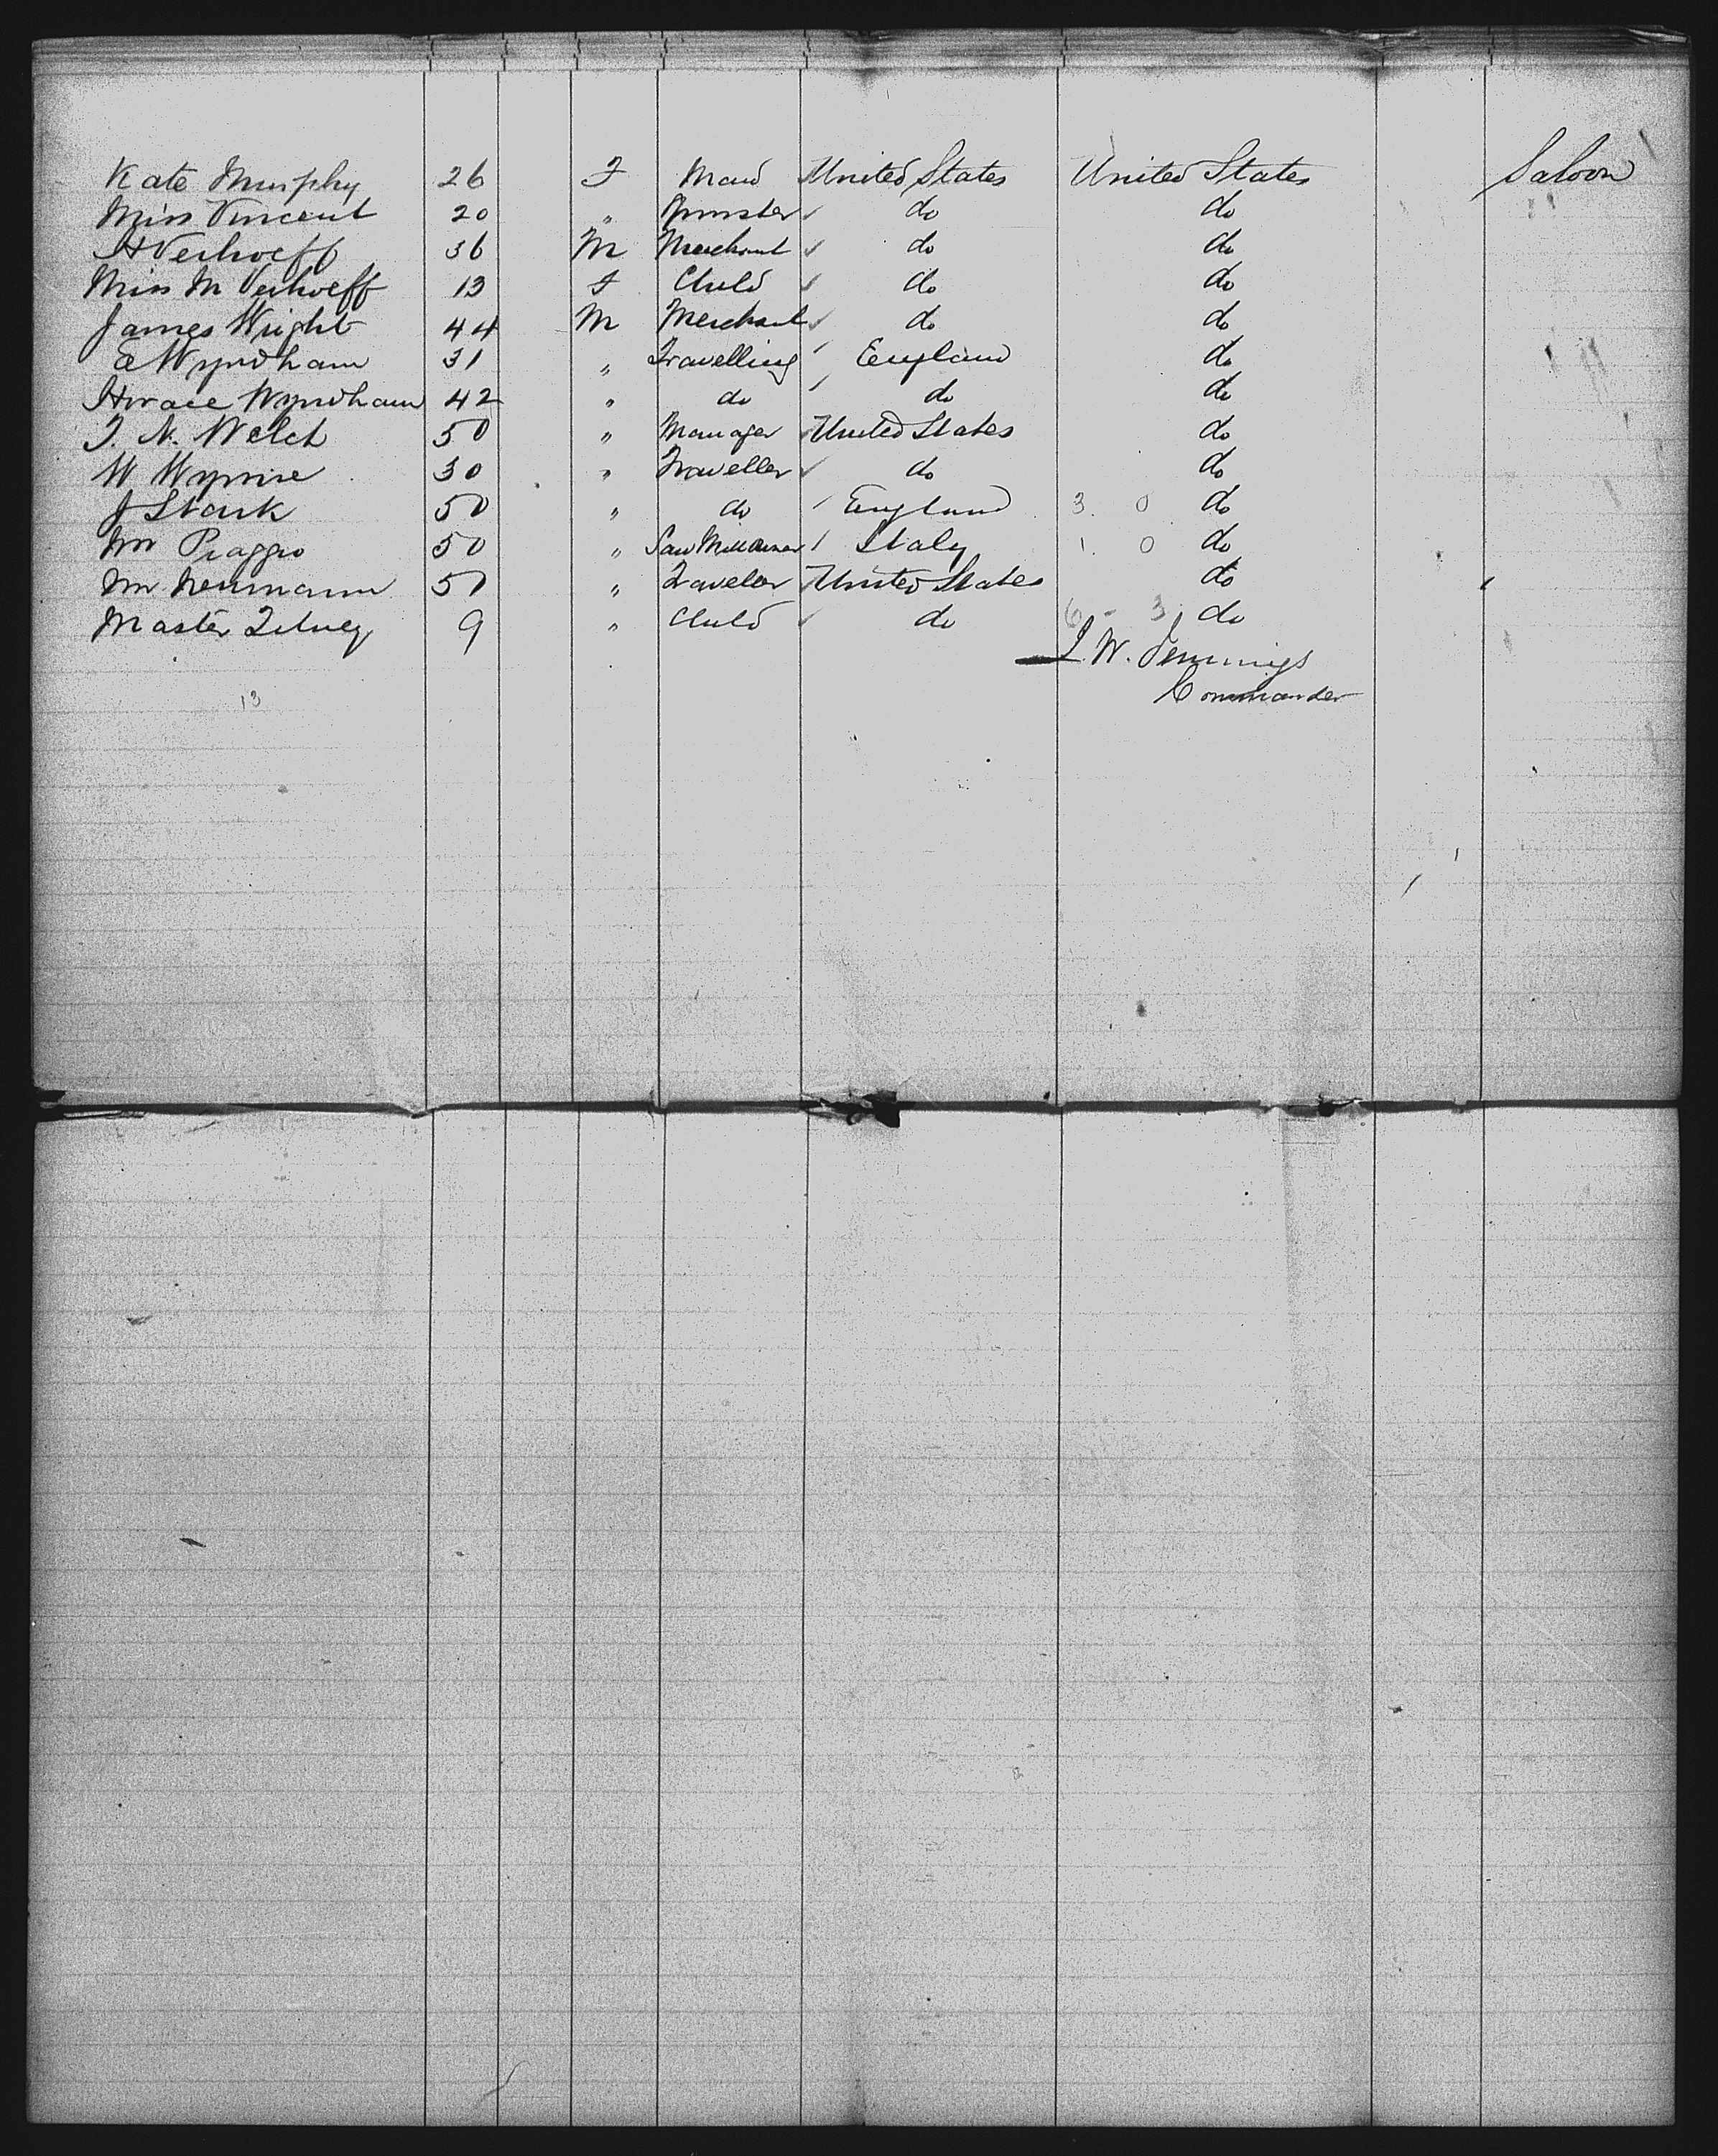 Kate Murphy 26 F Maid United States United States Saloon
Miss Vincent 20 " Spinster do do
H Verhoeff 36 M Merchant do do
Miss M Verhoeff 13 F Child do do
James Wright 44 M Merchant do do
E Wyndham 31 " Travelling England do
Horace Wyndham 42 " do do do
J. N. Welch 50 " Manager United States do
W Wynne 30 " Traveller do do
J Stark 50 " do England 3. 0 do
Mr Piaggio 50 " Saw Mill Owner Italy 1. 0 do
Mr Neumann 51 " Traveler United States do
Master 9 " Child do 6 - 3. do
L. W. Jennings
13 Commander